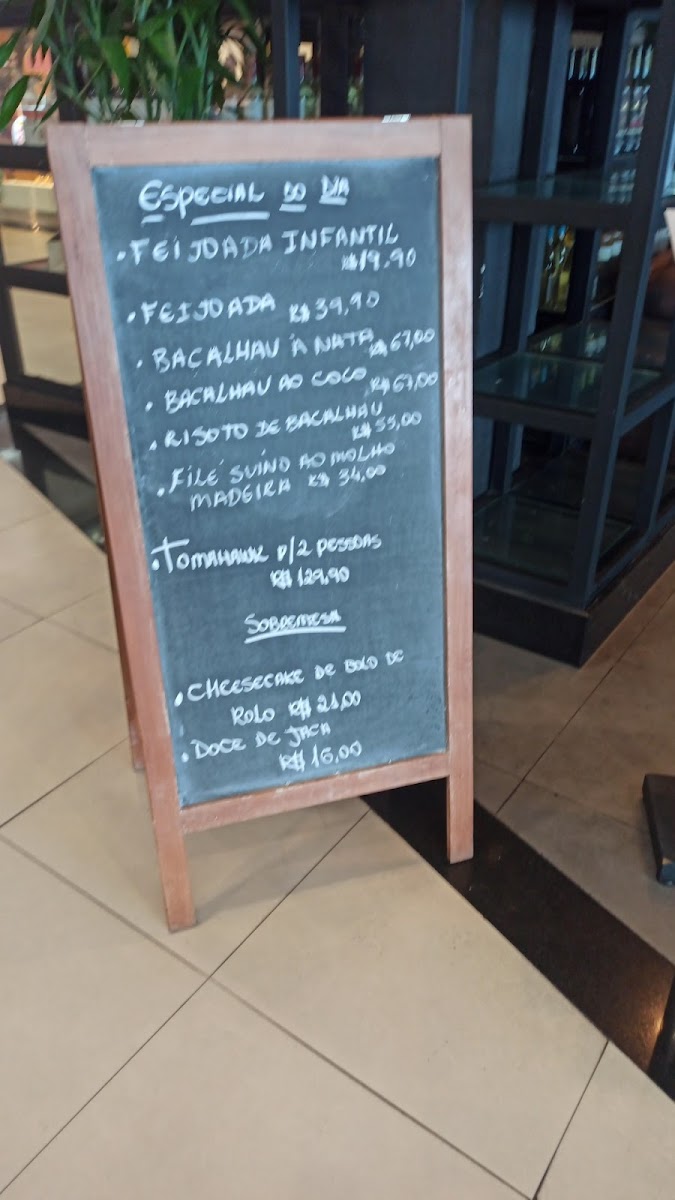 ESPECIAL DO DIA
• FEIJOADA INFANTIL
R$19.90
• FEIJOADA R$39,90
• BACALHAU À NATA R$67,00
• BACALHAU AO COCO R$67,00
• RISOTO DE BACALHAU
R$55,00
• FILÉ SUÍNO AO MOLHO
MADEIRA R$ 34,00
• TOMAHAWK P/2 PESSOAS
R$129,90
SOBREMESA
• CHEESECAKE DE BOLO DE
ROLO R$21,00
• DOCE DE JACA
R$16,00